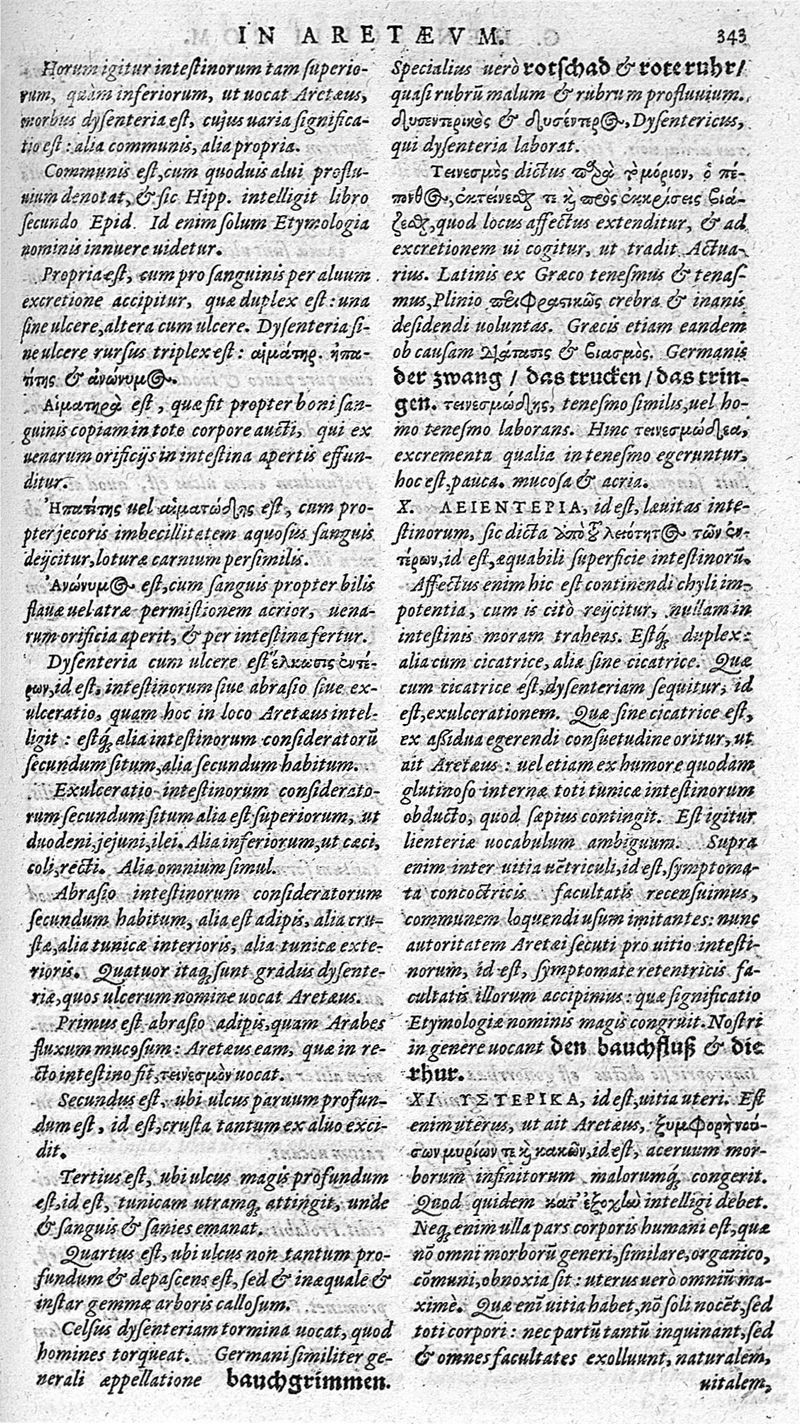 IN ARETÆVM. 343
Horum igitur intestinorum tam superio-
rum, quàm inferiorum, ut uocat Aretæus,
morbus dysenteria est, cujus uaria significa-
tio est: alia communis, alia propria.
Communis est, cum quoduis alui proflu-
uium denotat, & sic Hipp. intelligit libro
secundo Epid. Id enim solum Etymologia
nominis innuere uidetur.
Propria est, cum pro sanguinis per aluum
excretione accipitur, quæ duplex est: una
sine ulcere, altera cum ulcere. Dysenteria si-
ne ulcere rursus triplex est: αἱματηρ. ἡπα-
τίτης & ἀνώνυμος.
Αἱματηρὰ est, quæ fit propter boni san-
guinis copiam in toto corpore aucti, qui ex
uenarum orificijs in intestina apertis effun-
ditur.
Ἡπατίτης uel αἱματώδης est, cum pro-
pter jecoris imbecillitatem aquosus sanguis
deijcitur, loturæ carnium persimilis.
Ἀνώνυμος est, cum sanguis propter bilis
flauæ uel atræ permistionem acrior, uena-
rum orificia aperit, & per intestina fertur.
Dysenteria cum ulcere est ἕλκωσις ἐντέ-
ρων, id est, intestinorum siue abrasio siue ex-
ulceratio, quam hoc in loco Aretæus intel-
ligit: estq́; alia intestinorum consideratorũ
secundum situm, alia secundum habitum.
Exulceratio intestinorum considerato-
rum secundum situm alia est superiorum, ut
duodeni, jejuni, ilei. Alia inferiorum, ut cæci,
coli, recti. Alia omnium simul.
Abrasio intestinorum consideratorum
secundum habitum, alia est adipis, alia cru-
stæ, alia tunicæ interioris, alia tunicæ exte-
rioris. Quatuor itaq; sunt gradus dysente-
riæ, quos ulcerum nomine uocat Aretæus.
Primus est abrasio adipis, quam Arabes
fluxum mucosum: Aretæus eam, quæ in re-
cto intestino fit, τεινεσμὸν uocat.
Secundus est, ubi ulcus paruum profun-
dum est, id est, crusta tantum ex aluo exci-
dit.
Tertius est, ubi ulcus magis profundum
est, id est, tunicam utramq; attingit, unde
& sanguis & sanies emanat.
Quartus est, ubi ulcus non tantum pro-
fundum & depascens est, sed & inæquale &
instar gemmæ arboris callosum.
Celsus dysenteriam tormina uocat, quod
homines torqueat. Germani similiter ge-
nerali appellatione bauchgrimmen.
Specialius uerò rotschad & rote ruhr/
quasi rubrũ malum & rubrum profluuium.
δυσεντερικὸς & δυσέντερος, Dysentericus,
qui dysenteria laborat.
Τεινεσμὸς dictus παρὰ τὸ μόριον, ὁ πέ-
πονθος, ἐκτείνεσθαι τε κ̀ πρὸς ἐκκρίσεις βιά-
ζεσθαι, quod locus affectus extenditur, & ad
excretionem ui cogitur, ut tradit Actua-
rius. Latinis ex Græco tenesmus & tenas-
mus, Plinio περιφραστικῶς crebra & inanis
desidendi uoluntas. Græcis etiam eandem
ob causam διάτασις & βιασμὸς. Germanis
der zwang / das trucken / das trin-
gen. τεινεσμώδης, tenesmo similis, uel ho-
mo tenesmo laborans. Hinc τεινεσμώδεα,
excrementa qualia in tenesmo egeruntur,
hoc est, pauca. mucosa & acria.
X. ΛΕΙΕΝΤΕΡΙΑ, id est, læuitas inte-
stinorum, sic dicta ἀπὸ τ λειότητος τῶν ἐν-
τέρων, id est, æquabili superficie intestinorũ.
Affectus enim hic est continendi chyli im-
potentia, cum is citò reijcitur, nullam in
intestinis moram trahens. Estq́; duplex:
alia cum cicatrice, alia sine cicatrice. Quæ
cum cicatrice est, dysenteriam sequitur, id
est, exulcerationem. Quæ sine cicatrice est,
ex assidua egerendi consuetudine oritur, ut
ait Aretæus: uel etiam ex humore quodam
glutinoso internæ toti tunicæ intestinorum
obducto, quod sæpius contingit. Est igitur
lienteriæ uocabulum ambiguum. Supra
enim inter uitia uẽtriculi, id est, symptoma-
ta concoctricis facultatis recensuimus,
communem loquendi usum imitantes: nunc
autoritatem Aretæi secuti pro uitio intesti-
norum, id est, symptomate retentricis fa-
cultatis illorum accipimus: quæ significatio
Etymologiæ nominis magis congruit. Nostri
in genere uocant den bauchfluß & die
rhur.
XI. ΥΣΤΕΡΙΚΑ, id est, uitia uteri. Est
enim uterus, ut ait Aretæus, ξυμφορὴ νού-
σων μυρίων τε κ̀ κακῶν, id est, aceruum mor-
borum infinitorum malorumq́; congerit.
Quod quidem κατ' ἐξοχὼ intelligi debet.
Neq; enim ulla pars corporis humani est, quæ
nõ omni morborũ generi, similare, organico,
cõmuni, obnoxia sit: uterus uerò omniũ ma-
ximè. Quæ enĩ uitia habet, nõ soli nocẽt, sed
toti corpori: nec partũ tantũ inquinant, sed
& omnes facultates exolluunt, naturalem,
uitalem,